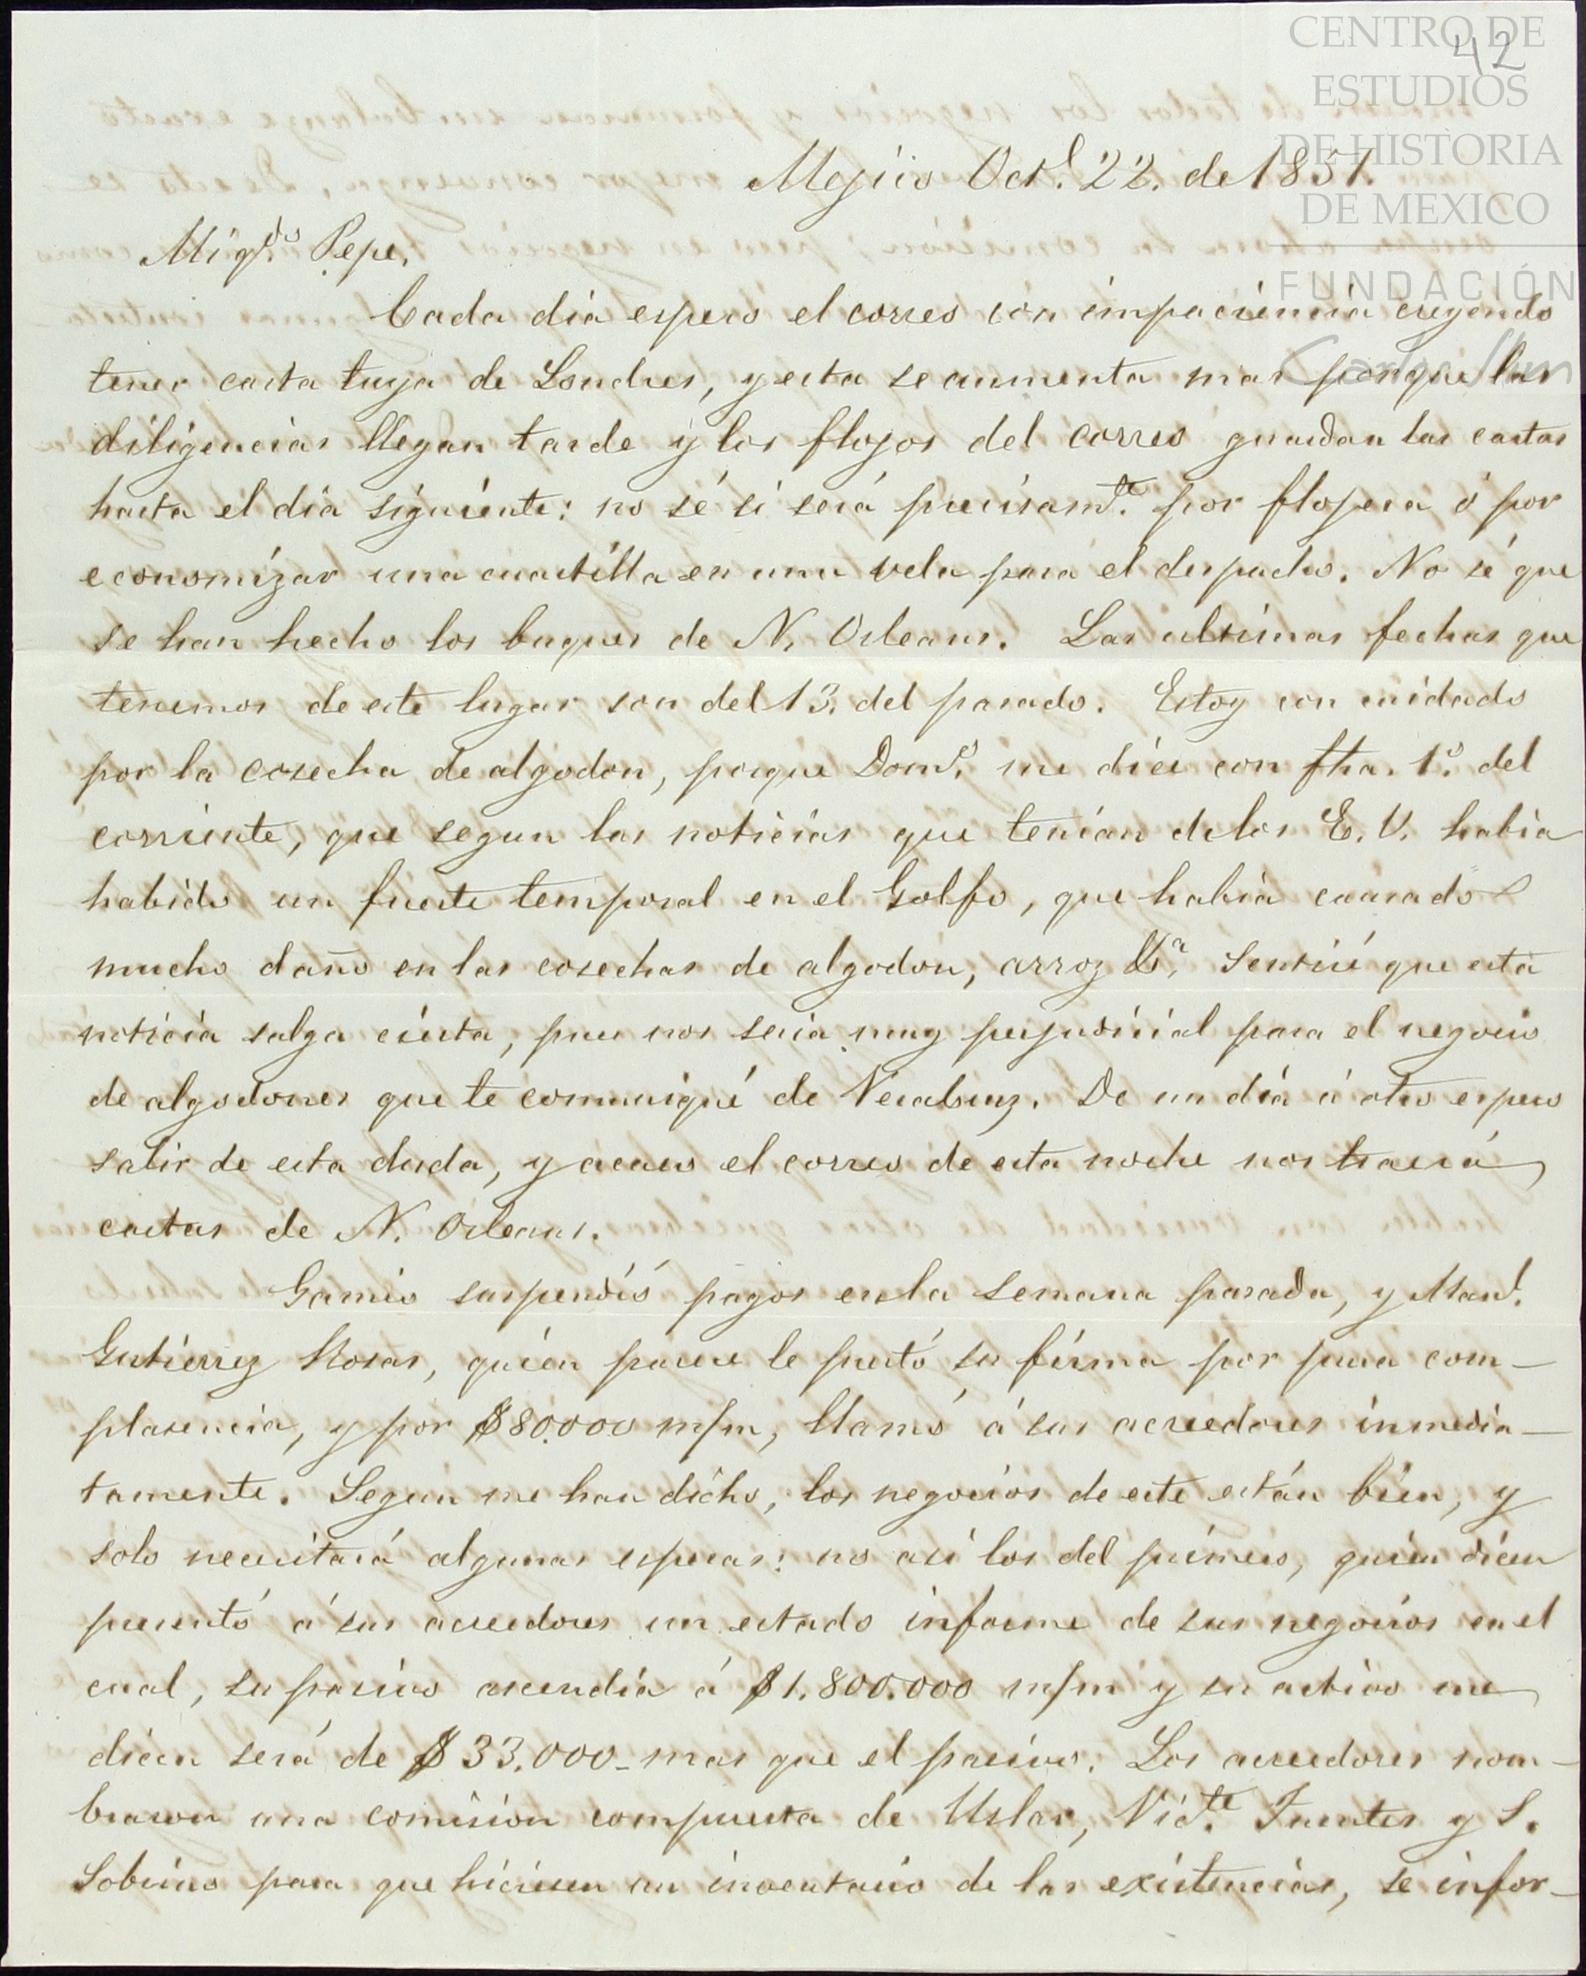 CENTRO DE
ESTUDIOS
DE HISTORIA
DE MEXICO
FUNDACIÓN
Carlos Slim
42
Mejico Oct.e 22. de 1851.
Mi q.do Pepe.
Cada dia espero el correo con impaciencia creyendo
tener carta tuya de Londres, y esta se aumenta mas porque las
diligencias llegan tarde y los flojos del correo guardan las cartas
hasta el dia siguiente: no sé si será precisam.te por flojera ó por
economizar una cuartilla en una vela para el despacho. No sé que
se han hecho los buques de N. Orleans. Las ultimas fechas que
tenemos de este lugar son del 13. del pasado. Estoy con cuidado
por la cosecha de algodon, porque Dom.o me dice con fha. 1.o del
corriente, que segun las noticias que tenian de los E. U. habia
habido un fuerte temporal en el Golfo, que habia causado
mucho daño en las cosechas de algodon, arroz &.a Sentiré que esta
noticia salga cierta, pues nos seria muy perjudicial para el negocio
de algodones que te comuniqué de Veracruz. De un dia á otro espero
salir de esta duda, y acaso el correo de esta noche nos traerá
cartas de N. Orleans.
Gamio suspendió pagos en la semana pasada, y Man.l
Gutierrez Rosas, quien parece le prestó su firma por pura com-
plasencia, y por $80.000 m/m, llamó á sus acreedores inmedia-
tamente. Segun me han dicho, los negocios de este están bien, y
solo necesitará algunas esperas: no asi los del primero, quien dicen
presentó á sus acreedores un estado informe de sus negocios en el
cual, su pasivo ascendia á $1.800.000 m/m y su activo me
dicen será de $33.000_ mas que el pasivo. Los acreedores nom-
braron una comision compuesta de Uslar, Vic.te Fuentes y S.
Sobrino para que hiciesen un inventario de las existencias, se infor-